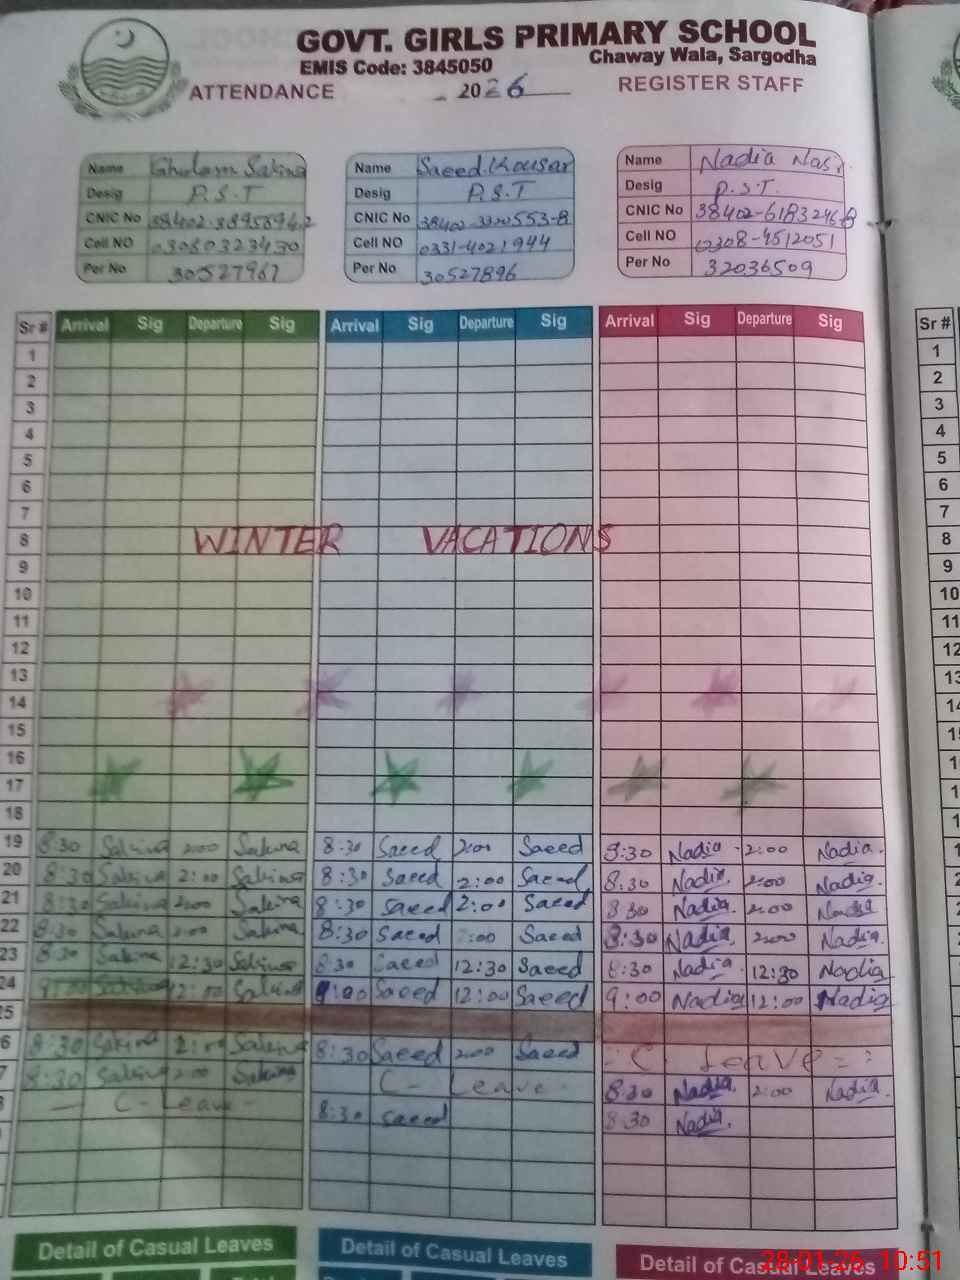 GOVT. GIRLS PRIMARY SCHOOL
EMIS Code: 3845050 Chaway Wala, Sargodha
ATTENDANCE 2026 REGISTER STAFF
Name Ghulam Sakina Name Saeed Kousar Name Nadia
Desig P.S.T Desig P.S.T Desig P.S.T.
CNIC No CNIC No CNIC No
Cell NO Cell NO 0331-4021944 Cell NO 0308-4512051
Per No 30527967 Per No 30527896 Per No 32036509
Sr # Arrival Sig Departure Sig Arrival Sig Departure Sig Arrival Sig Departure Sig Sr #
1 1
2 2
3 3
4 4
5 5
6 6
7 7
8 WINTER VACATIONS 8
9 9
10 10
11 11
12 12
13 13
14 14
15
16
17
18
19 8:30 Sakina 2:00 Sakina 8:30 Saeed 2:00 Saeed 8:30 Nadia 2:00 Nadia
20 8:30 Sakina 2:00 Sakina 8:30 Saeed 2:00 Saeed 8:30 Nadia 2:00 Nadia
21 8:30 Sakina 2:00 Sakina 8:30 Saeed 2:00 Saeed 8:30 Nadia 2:00 Nadia
22 8:30 Sakina 2:00 Sakina 8:30 Saeed 2:00 Saeed 8:30 Nadia 2:00 Nadia
23 8:30 Sakina 12:30 Sakina 8:30 Saeed 12:30 Saeed 8:30 Nadia 12:30 Nadia
24 9:00 Sakina 12:00 Sakina 9:00 Saeed 12:00 Saeed 9:00 Nadia 12:00 Nadia
25
6 8:30 Sakina 2:00 Sakina 8:30 Saeed 2:00 Saeed C. Leave
7 8:30 Sakina 2:00 Sakina C - Leave 8:30 Nadia 2:00 Nadia
C - Leave 8:30 Saeed 8:30 Nadia
Detail of Casual Leaves Detail of Casual Leaves Detail of Casual Leaves
28.01.26 10:51